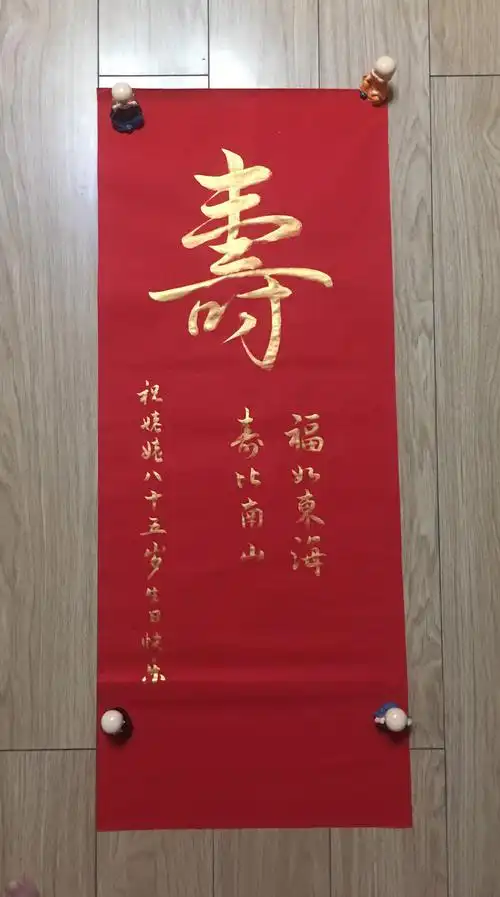 壽
福如東海
寿比南山
祝姥姥八十五岁生日快乐